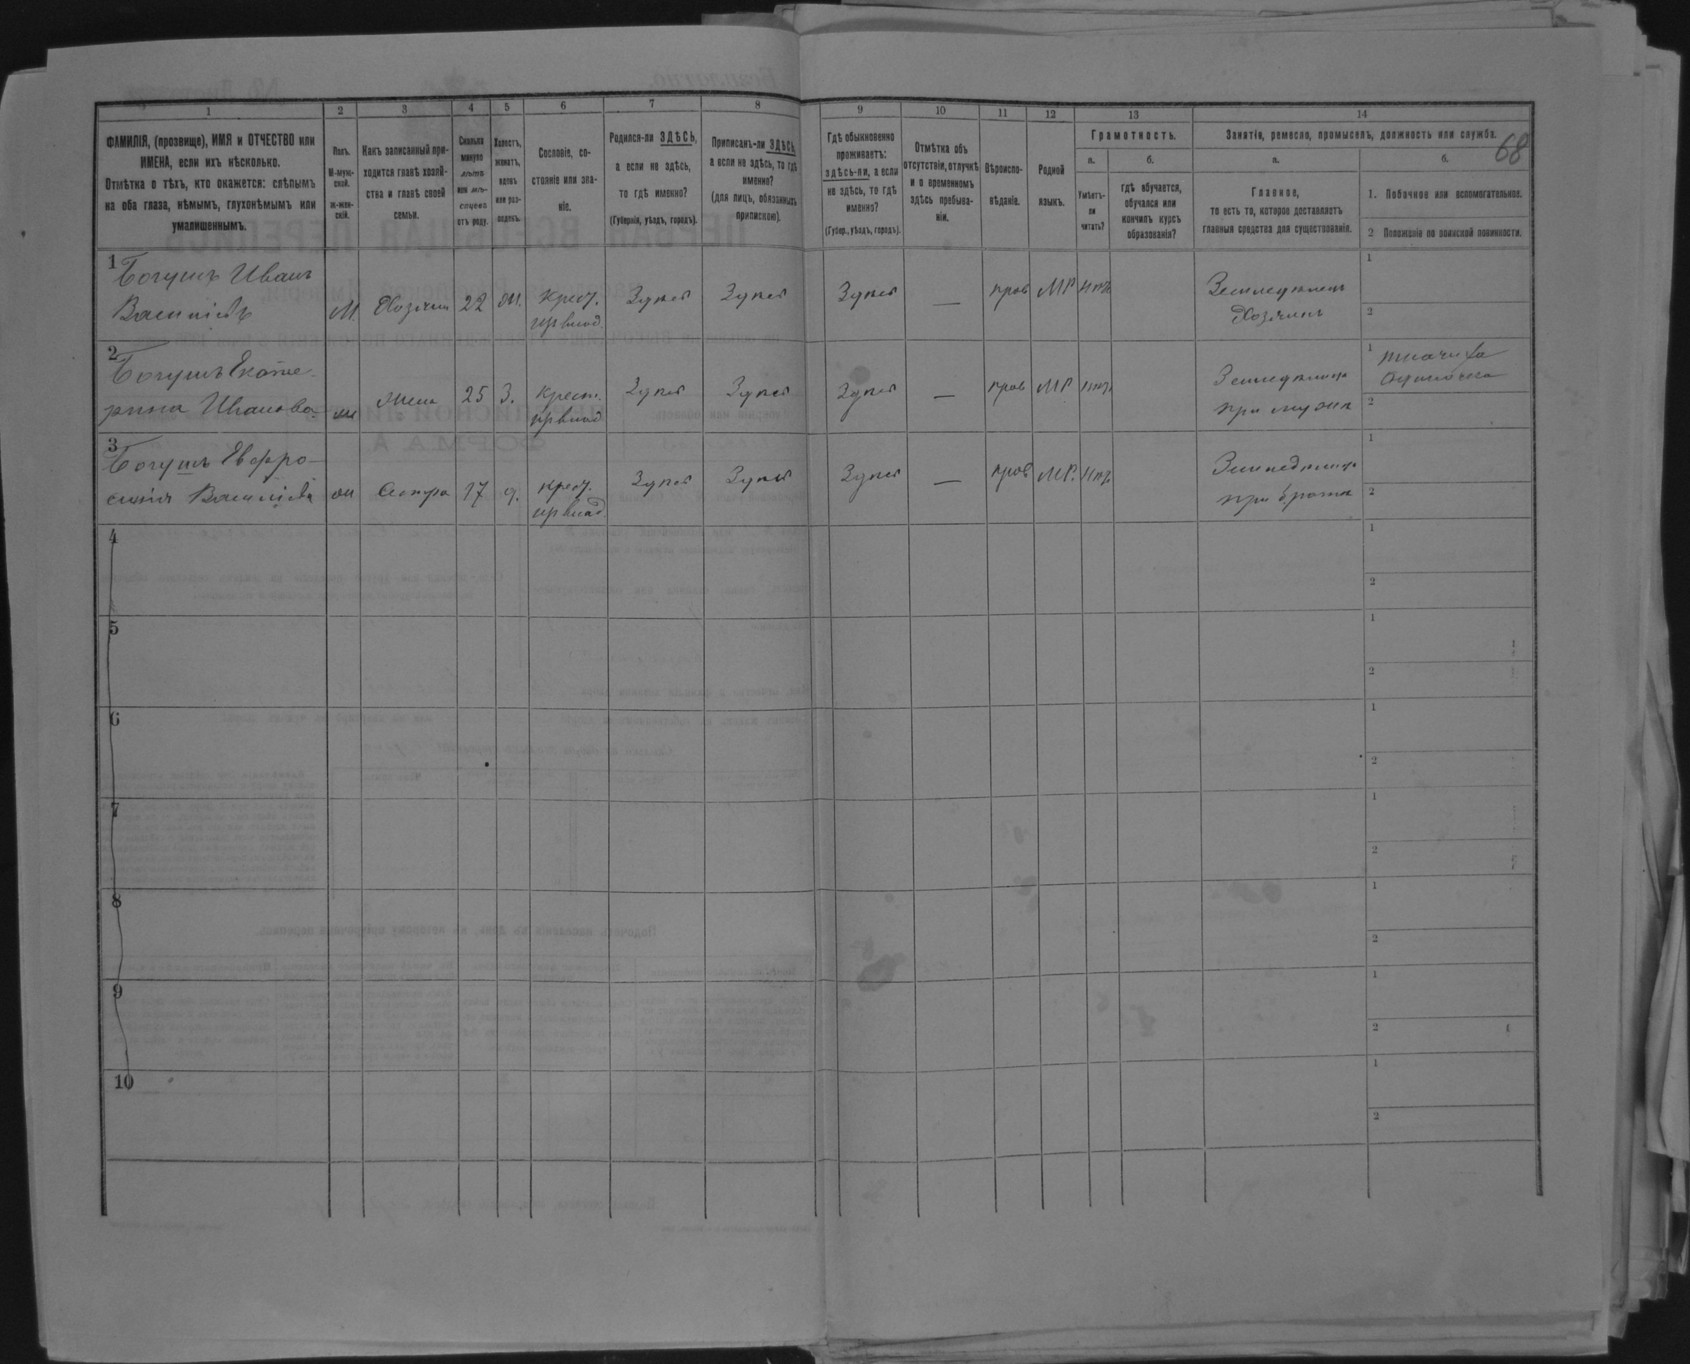 68
1 2 3 4 5 6 7 8 9 10 11 12 13 14
ФАМИЛІЯ, (прозвище), ИМЯ и ОТЧЕСТВО или
ИМЕНА, если ихъ нѣсколько.
Отмѣтка о тѣхъ, кто окажется: слѣпымъ
на оба глаза, нѣмымъ, глухонѣмымъ или
умалишеннымъ.
Полъ.
М-муж-
ской.
ж-жен-
скій.
Какъ записанный при-
ходится главѣ хозяй-
ства и главѣ своей
семьи.
Сколько
минуло
лѣтъ
или мѣ-
сяцевъ
отъ роду.
Холостъ,
женатъ,
вдовъ
или раз-
веденъ.
Сословіе, со-
стояніе или зва-
ніе.
Родился-ли ЗДѢСЬ,
а если не здѣсь,
то гдѣ именно?
(Губернія, уѣздъ, городъ).
Приписанъ-ли ЗДѢСЬ,
а если не здѣсь, то гдѣ
именно?
(для лицъ, обязанныхъ
припискою).
Гдѣ обыкновенно
проживаетъ:
здѣсь-ли, а если
не здѣсь, то гдѣ
именно?
(Губер., уѣздъ, городъ).
Отмѣтка объ
отсутствіи, отлучкѣ
и о временномъ
здѣсь пребыва-
ніи.
Вѣроиспо-
вѣданіе.
Родной
языкъ.
Грамотность.
а.
Умѣетъ-
ли
читать?
б.
гдѣ обучается,
обучался или
кончилъ курсъ
образованія?
Занятіе, ремесло, промыселъ, должность или служба.
а.
Главное,
то есть то, которое доставляетъ
главныя средства для существованія.
б.
1. Побочное или вспомогательное.
2 Положеніе по воинской повинности.
1 Богушъ Иванъ
Василіевъ
М. Хозяин 22 Ж. крест.
Здѣсь Здѣсь Здѣсь — прав МР нѣт
Земледѣлецъ
Хозяинъ
1
2
2 Богушъ Екате-
рина Иванова
ж Жена 25 З. крест.
Здѣсь Здѣсь Здѣсь — прав МР нѣт
Земледѣлица
при мужѣ
1 ткачиха
2
3 Богушъ Евфро-
синія Василіева
ж Сестра 17 д. крест.
Здѣсь Здѣсь Здѣсь — прав МР. нѣт
Земледѣлица
при братѣ
1
2
4
1
2
5
1
2
6
1
2
7
1
2
8
1
2
9
1
2
10
1
2